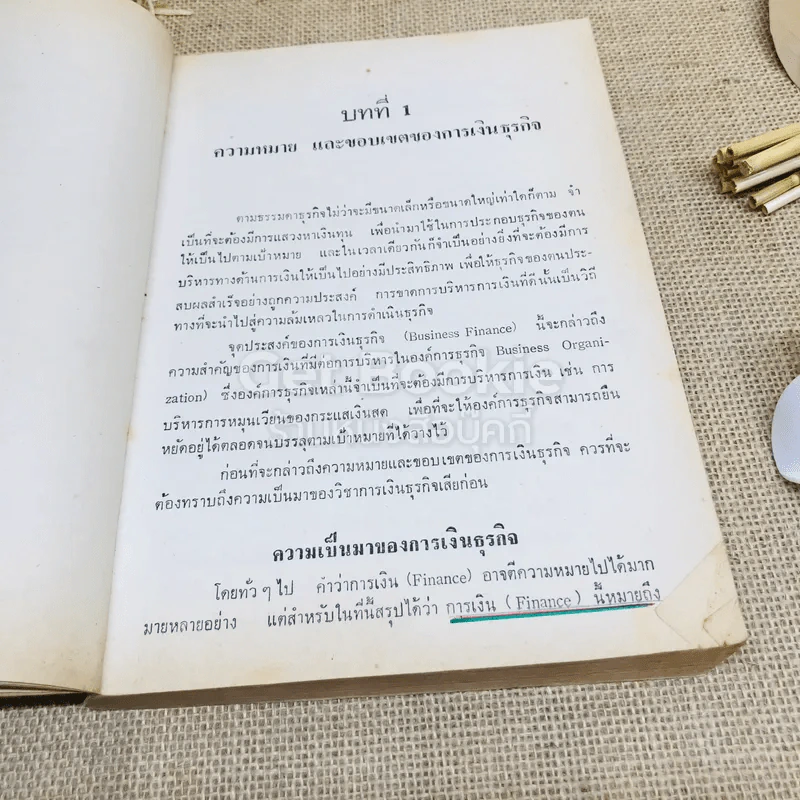 บทที่ 1
ความหมาย และขอบเขตของการเงินธุรกิจ
ตามธรรมดาธุรกิจไม่ว่าจะมีขนาดเล็กหรือขนาดใหญ่เท่าใดก็ตาม จำ
เป็นที่จะต้องมีการแสวงหาเงินทุน เพื่อนำมาใช้ในการประกอบธุรกิจของตน
ให้เป็นไปตามเป้าหมาย และในเวลาเดียวกันก็จำเป็นอย่างยิ่งที่จะต้องมีการ
บริหารทางด้านการเงินให้เป็นไปอย่างมีประสิทธิภาพ เพื่อให้ธุรกิจของตนประ-
สบผลสำเร็จอย่างถูกความประสงค์ การขาดการบริหารการเงินที่ดีนั้นเป็นวิถี
ทางที่จะนำไปสู่ความล้มเหลวในการดำเนินธุรกิจ
จุดประสงค์ของการเงินธุรกิจ (Business Finance) นี้จะกล่าวถึง
ความสำคัญของการเงินที่มีต่อการบริหารในองค์การธุรกิจ Business Organi-
zation) ซึ่งองค์การธุรกิจเหล่านี้จำเป็นที่จะต้องมีการบริหารการเงิน เช่น การ
บริหารการหมุนเวียนของกระแสเงินสด เพื่อที่จะให้องค์การธุรกิจสามารถยืน
หยัดอยู่ได้ตลอดจนบรรลุตามเป้าหมายที่ได้วางไว้
ก่อนที่จะกล่าวถึงความหมายและขอบเขตของการเงินธุรกิจ ควรที่จะ
ต้องทราบถึงความเป็นมาของวิชาการเงินธุรกิจเสียก่อน
ความเป็นมาของการเงินธุรกิจ
โดยทั่ว ๆ ไป คำว่าการเงิน (Finance) อาจตีความหมายไปได้มาก
มายหลายอย่าง แต่สำหรับในที่นี้สรุปได้ว่า การเงิน (Finance) นี้หมายถึง